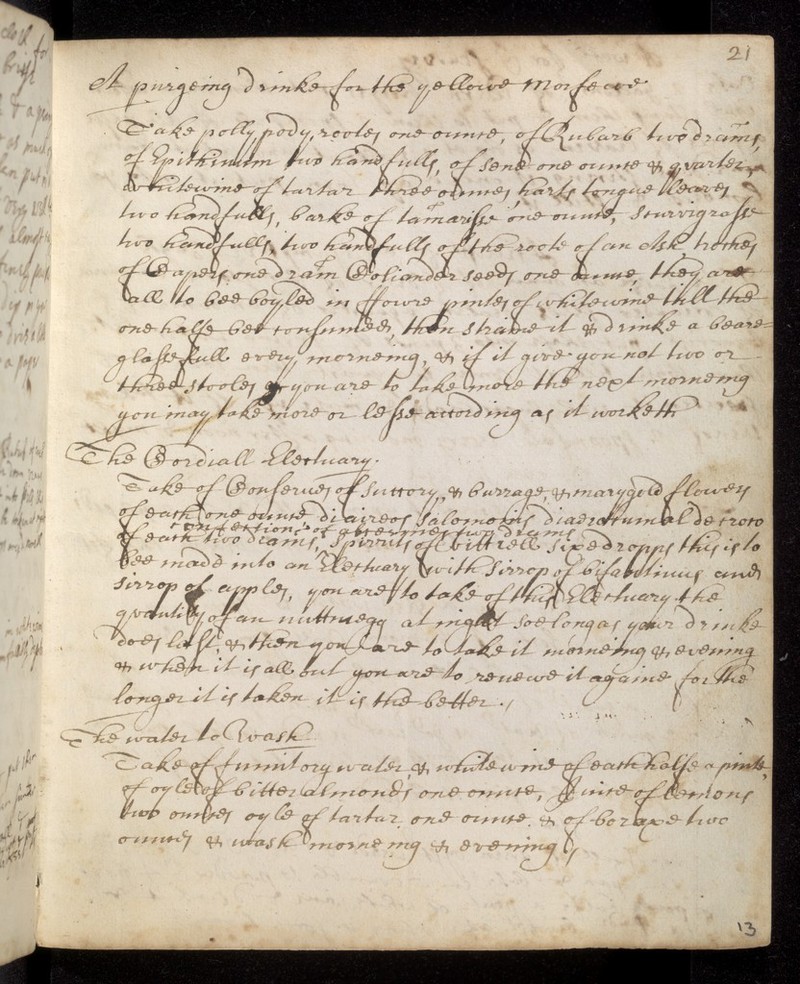 21
A purgeing drinke for the yellowe Morfeew
Take pollypody rootes one ounce, of Rubarb two drams,
of Epithimum two handfulls, of sene one ounce & quarter
whitewine of tartar three ounces, harts tongue leaves
two handfulls, barke of tamarisse one ounce, scurvigrasse
two handfulls, two handfulls of the roote of an Ash, troches
of Capers one dram Coliander seeds one ounce, they are
all to bee boyled in ffowre pintes of whitewine till the
one halfe bee consumed, then straine it & drinke a beare=
glasse full every morneing, & if it give you not two or
three stooles you are to take more the next morneing
you may take more or lesse according as it worketh
The Cordiall Electuary.
Take of Conserves of Succory, & burrage, & marygold flowers
of each one ounce diaireos Salomonis de croco
confections of alcermes two drams
of each two drams, Spirrits of vittrell sixe dropps this is to
bee made into an Electuary with Sirrop of and
Sirrop of apples, you are to take of this Electuary the
quantity of an nuttmegg at night soe long as your drinke
does last, & then you are to take it morneing & evening
& when it is all out you are to renewe it againe for the
longer it is taken it is the better.
The water to Wash
Take of fumitory water, & whitewine of each halfe a pinte,
of oyle of bitter almonds one ounce, Juice of lemons
two ounces oyle of tartar one ounce & of boraxe two
ounces & wash morneing & evening
13